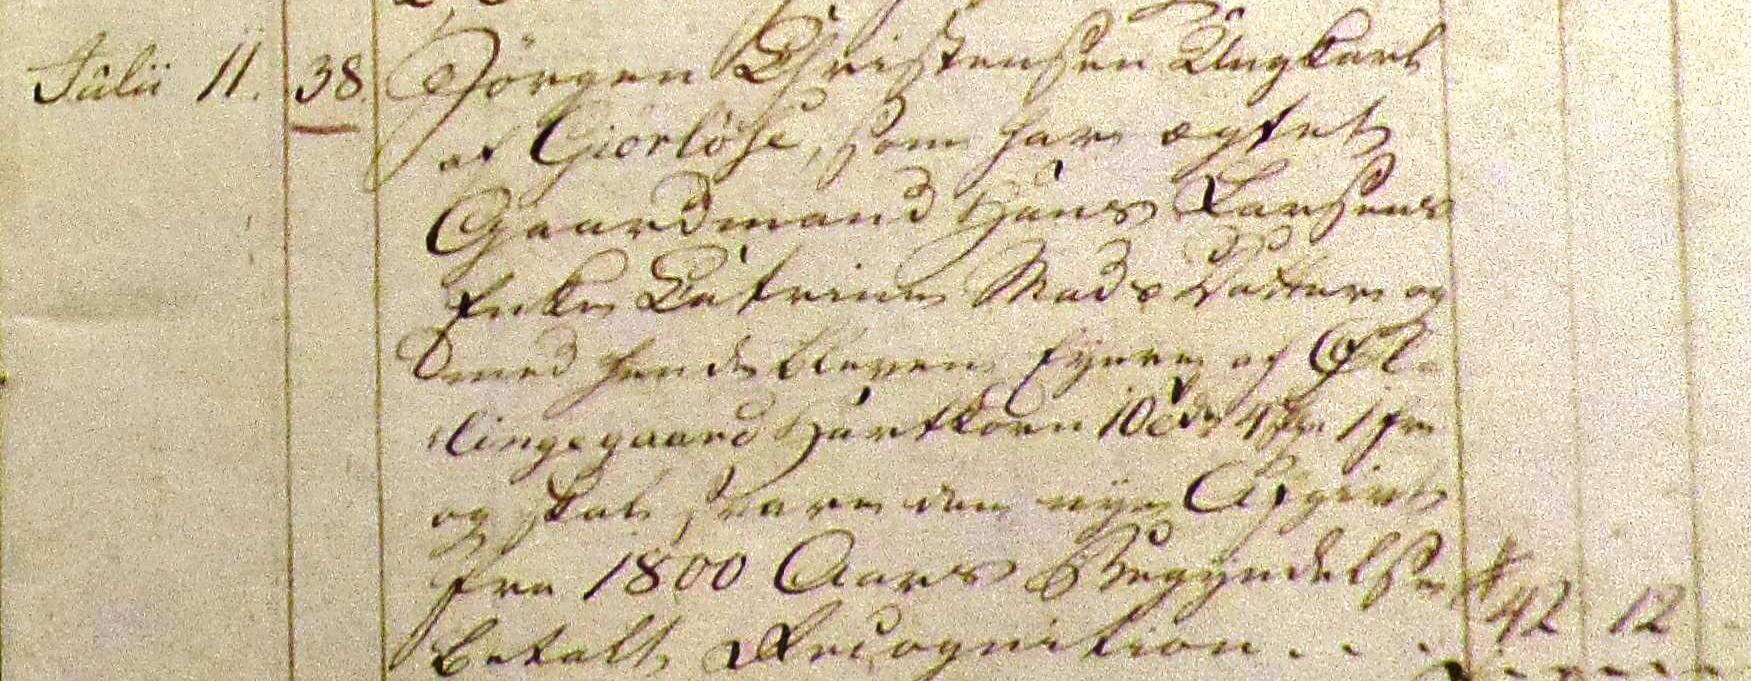 Julii 11. 38. Jörgen Christensen Ungkarl
af Giorlöse, som har ægtet
Gaardmand Hans Larsens
Enke Catrine Mads Datter og
med hende bleven Eyere af Øl-
lingegaard Hartkorn 10 Td 4 Skp 1 Fr
og skal svare den nye Afgivt
fra 1800 Aars Begyndelse
betalt Recognition . . . 42 12